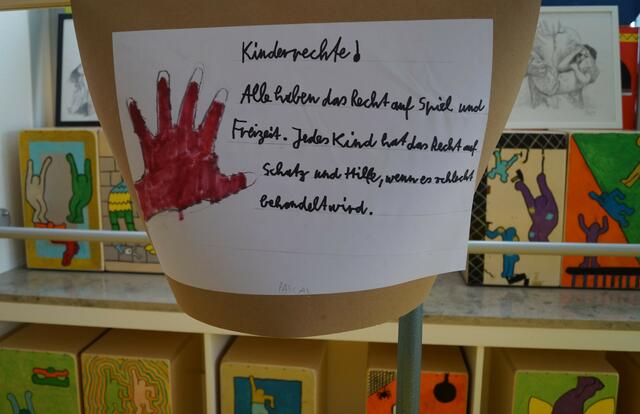 Kinderrechte!
Alle haben das Recht auf Spiel und
Freizeit. Jedes Kind hat das Recht auf
Schutz und Hilfe, wenn es schlecht
behandelt wird.
PASCAL